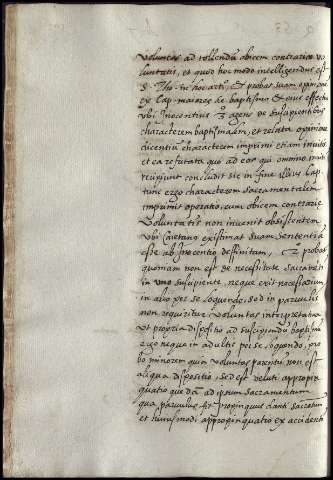 voluntas ad tollendū obicem contrariæ vo
luntatis, et quod hoc modo intelligendus est
S. Tho. in hoc arti. et probat suam opinionē
ex Cap. maiores de baptismo & eius effectu
ubi Inocentius 3 agens de suscipientibus
characterem baptismalem, et relata opinione
dicentiū characterem imprimi etiam inuitis
et ea refutata quo ad eos qui omnino non
recipiunt concludit sic in fine illius cap.
tunc ergo characterem sacramentalem
imprimit operatio, cum obicem contrariæ
voluntatis non invenit obsistentem
ubi Caietano existimat suam sententiā
esse ab Inocentio deffinitam, probat
quoniam non est de necessitate sacramēti
in uno suscipiente, neque erit necessarium
in alio per se loquendo, sed in paruulis
non requiritur voluntas interpretatiua
ut propria dispositio ad suscipiendū baptismū
ergo neque in adultis per se loquendo, pro
bo minorem quia voluntas parentū non est
aliqua dispositio, sed est veluti appropin
quatio quedā ad ipsum sacramentum
qua paruulus fit propinquus danti sacramentū
et huiusmodi appropinquatio ex accidenti